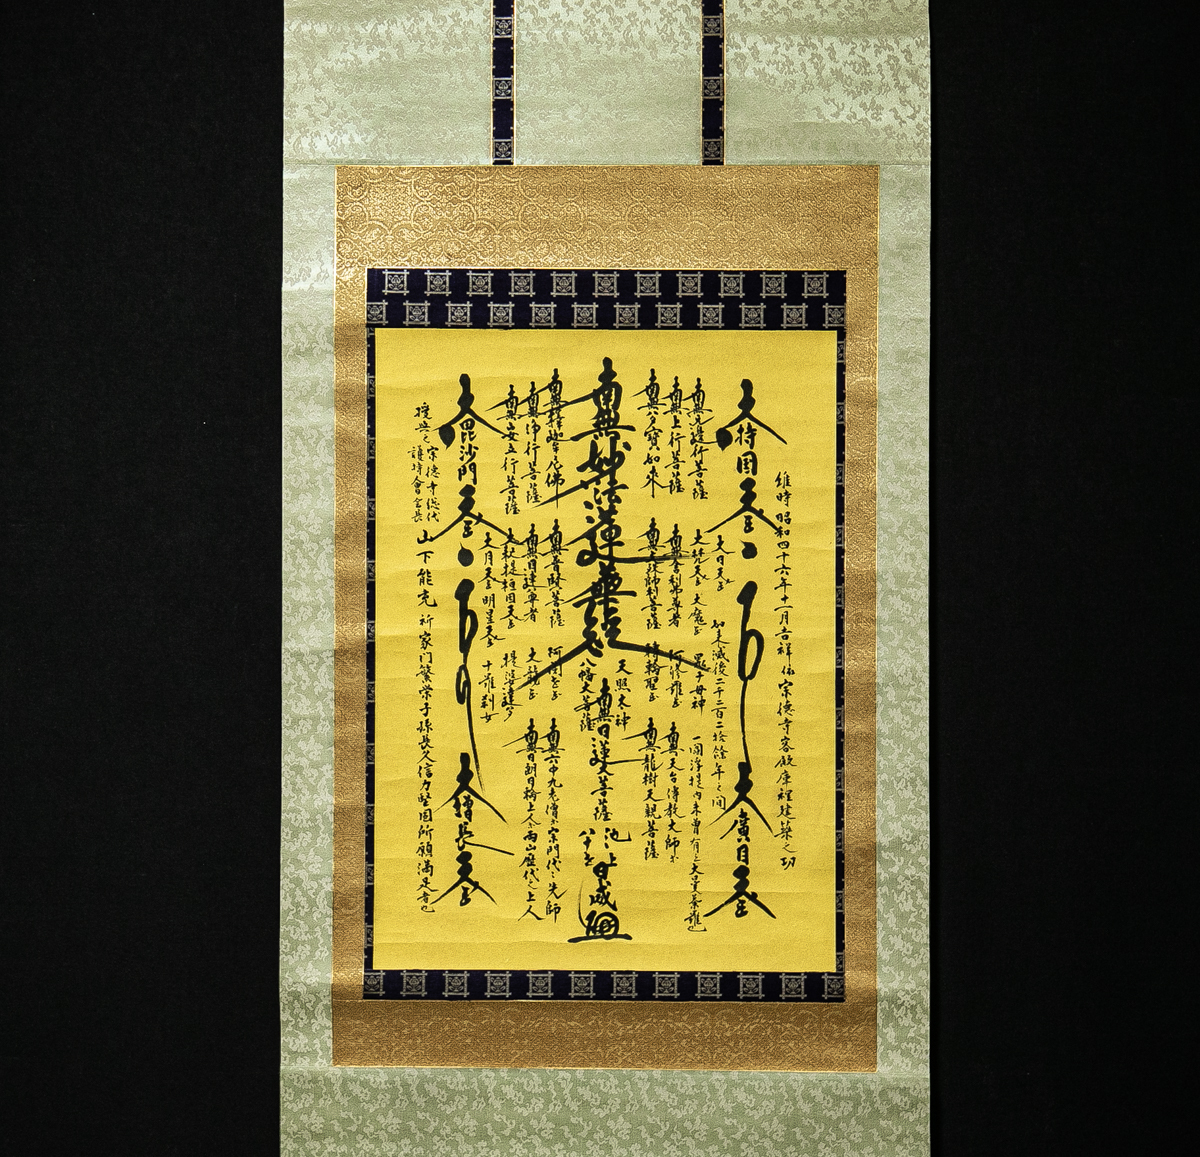 維時昭和四十六年十一月吉祥 宗徳寺客殿庫裡建築之功
大持国天王
大廣目天王
大日天王
如来滅後二千二百二拾餘年之間
一閻浮提内未曾有之大曼荼羅也
南無上行菩薩
南無多寶如来
大梵天王 大魔王 鬼子母神
南無舎利弗尊者 阿修羅王
南無文殊師利菩薩 轉輪聖王
南無天台傳教大師等
南無龍樹天親菩薩
南無妙法蓮華経
天照太神
八幡大菩薩
南無日蓮大菩薩
池上
八十世
日威
南無釋迦牟尼佛
南無浄行菩薩
南無安立行菩薩
南無普賢菩薩 阿闍世王
南無目連尊者 大龍王
釈提桓因天王 提婆達多
大月天王 明星天王 十羅刹女
南無六中九老僧等宗門代々先師
南無日朗日輪上人等両山歴代之上人
大毘沙門天王
大増長天王
授与之 宗徳寺総代
護持會会長
山下能充 祈家門繁栄子孫長久信力堅固所願満足者也